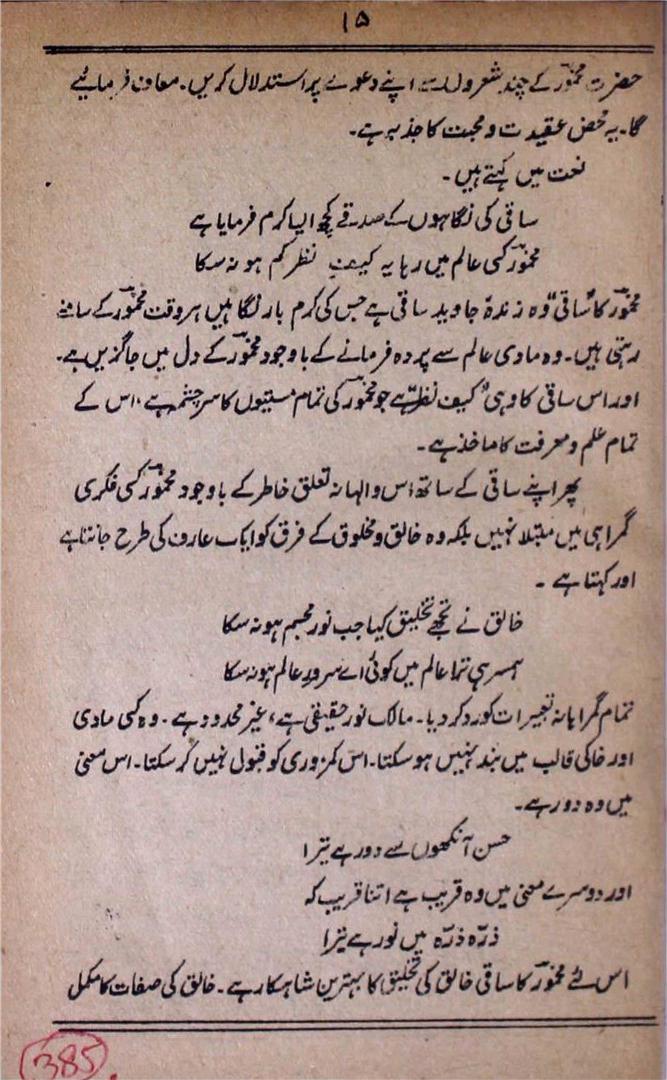 ۱۵
حضرت مخمورؔ کے چند شعروں سے اپنے دعوے پر استدلال کریں۔ معاف فرمائیے
گا۔ یہ محض عقیدت و محبت کا جذبہ ہے۔
نعت میں کہتے ہیں۔
ساقی کی نگاہوں کے صدقے کچھ ایسا کرم فرمایا ہے
مخمورؔ کسی عالم میں رہا یہ کیفِ نظر کم ہو نہ سکا
مخمورؔ کا "ساقی" وہ زندۂ جاوید ساقی ہے جس کی کرم بار نگاہیں ہر وقت مخمورؔ کے سامنے
رہتی ہیں۔ وہ مادی عالم سے پردہ فرمانے کے باوجود مخمورؔ کے دل میں جاگزیں ہے۔
اور اس ساقی کا وہی "کیف نظر" ہے جو مخمورؔ کی تمام مستیوں کا سرچشمہ ہے، اس کے
تمام علم و معرفت کا ماخذ ہے۔
پھر اپنے ساقی کے ساتھ اس والہانہ تعلق خاطر کے باوجود مخمورؔ کسی فکری
گمراہی میں مبتلا نہیں بلکہ وہ خالق و مخلوق کے فرق کو ایک عارف کی طرح جانتا ہے
اور کہتا ہے ۔
خالق نے تجھے تخلیق کیا جب نور مجسم ہو نہ سکا
ہمسر ہی ترا عالم میں کوئی اے سرورِ عالم ہو نہ سکا
تمام گمراہانہ تعبیرات کو رد کر دیا۔ مالک نور حقیقی ہے، غیر محدود ہے۔ وہ کسی مادی
اور خاکی قالب میں بند نہیں ہو سکتا۔ اس کمزوری کو قبول نہیں کر سکتا۔ اس معنی
میں وہ دور ہے۔
حسن آنکھوں سے دور ہے تیرا
اور دوسرے معنی میں وہ قریب ہے اتنا قریب کہ
ذرّہ ذرّہ میں نور ہے تیرا
اس لئے مخمورؔ کا ساقی خالق کی تخلیق کا بہترین شاہکار ہے۔ خالق کی صفات کا مکمل
385